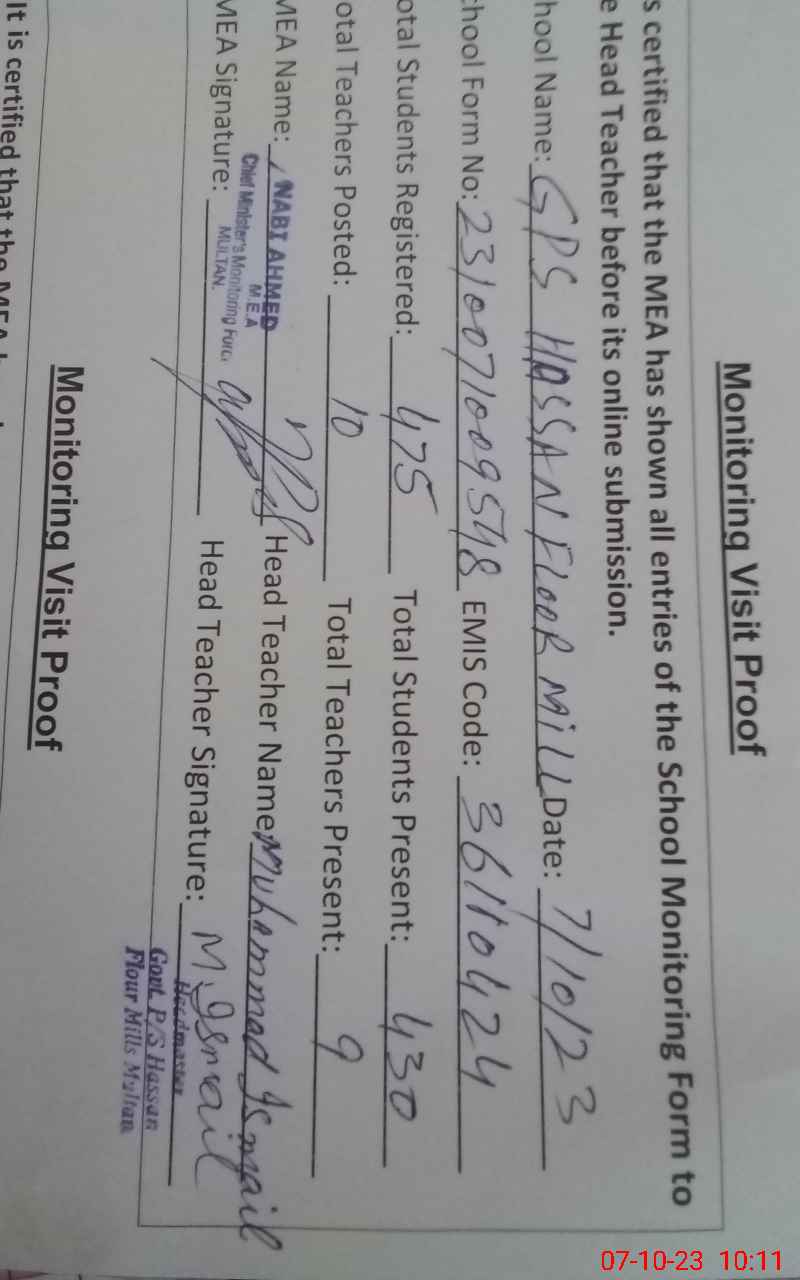 Monitoring Visit Proof
s certified that the MEA has shown all entries of the School Monitoring Form to
e Head Teacher before its online submission.
hool Name: GPS HASSAN FLOOR MILL Date: 7/10/23
chool Form No: 2310071009548 EMIS Code: 36110424
otal Students Registered: 475 Total Students Present: 430
otal Teachers Posted: 10 Total Teachers Present: 9
MEA Name: NABI AHMED Head Teacher Name Muhammad Ismail
M.E.A
Chief Minister's Monitoring Force
MULTAN.
MEA Signature: Head Teacher Signature: M. Ismail
Headmaster
Govt. P/S Hassan
Flour Mills Multan
Monitoring Visit Proof
It is certified that the MEA
07-10-23 10:11